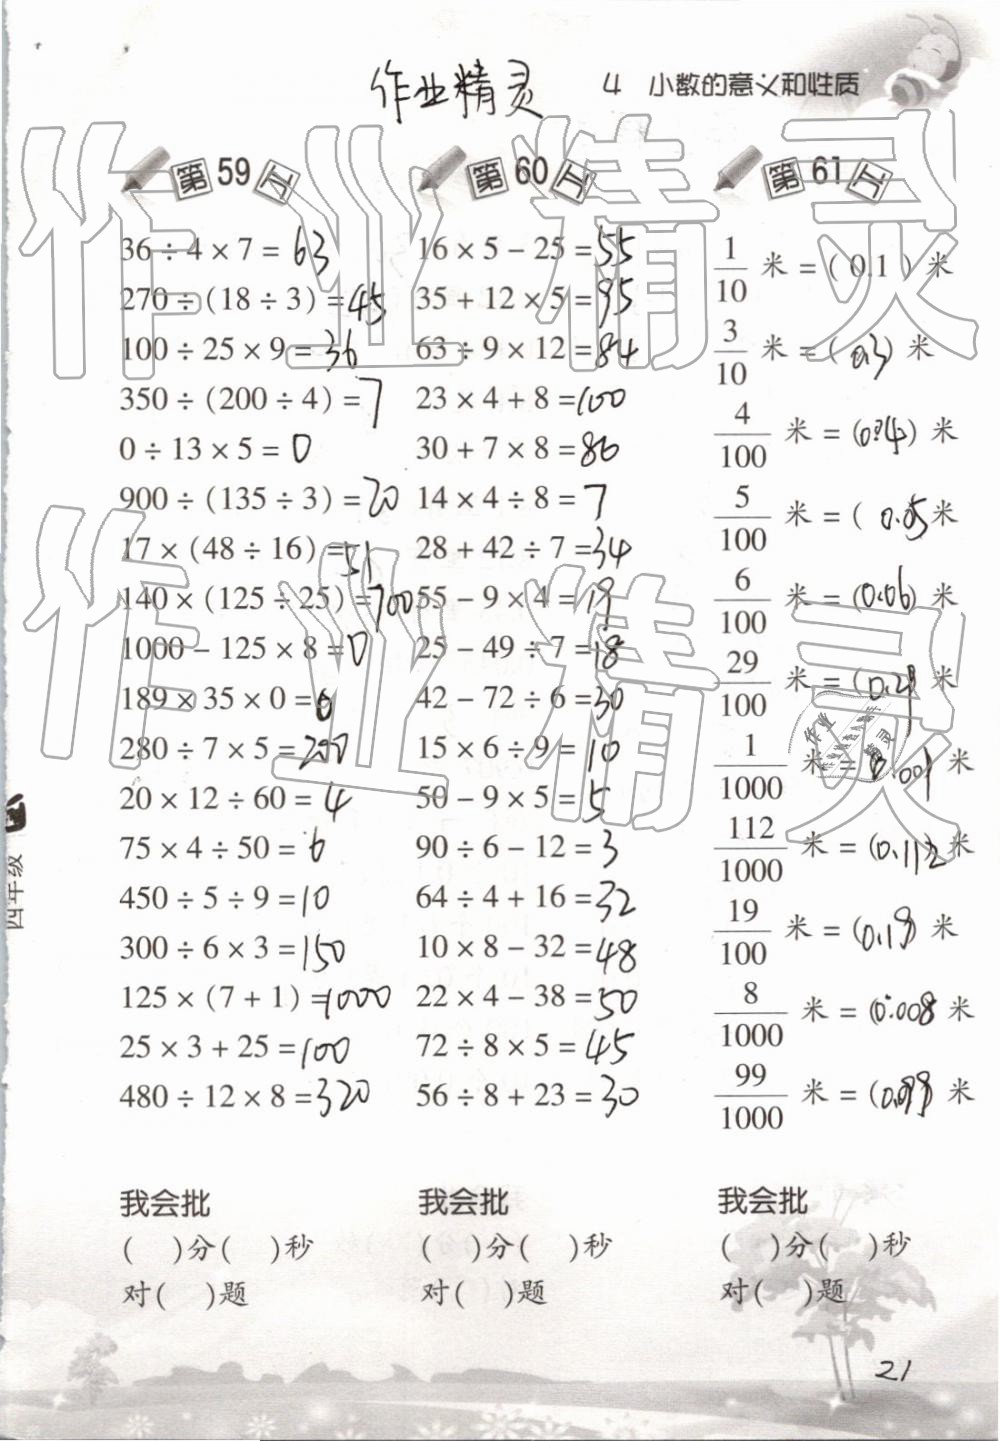 作业精灵 4 小数的意义和性质
第59天
36÷4×7=63
270÷(18÷3)=45
100÷25×9=36
350÷(200÷4)=7
0÷13×5=0
900÷(135÷3)=20
17×(48÷16)=51
140×(125÷25)=700
1000-125×8=0
189×35×0=0
280÷7×5=200
20×12÷60=4
75×4÷50=6
450÷5÷9=10
300÷6×3=150
125×(7+1)=1000
25×3+25=100
480÷12×8=320
我会批
( )分( )秒
对( )题
第60天
16×5-25=55
35+12×5=95
63÷9×12=84
23×4+8=100
30+7×8=86
14×4÷8=7
28+42÷7=34
55-9×4=19
25-49÷7=18
42-72÷6=30
15×6÷9=10
50-9×5=5
90÷6-12=3
64÷4+16=32
10×8-32=48
22×4-38=50
72÷8×5=45
56÷8+23=30
我会批
( )分( )秒
对( )题
第61天
1/10米=(0.1)米
3/10米=(0.3)米
4/100米=(0.04)米
5/100米=(0.05米
6/100米=(0.06)米
29/100米=(0.29米
1/1000米=0.001米
112/1000米=(0.112米
19/100米=(0.19)米
8/1000米=(0.008米
99/1000米=(0.099)米
我会批
( )分( )秒
对( )题
四年级
21
作业精灵
作业精灵